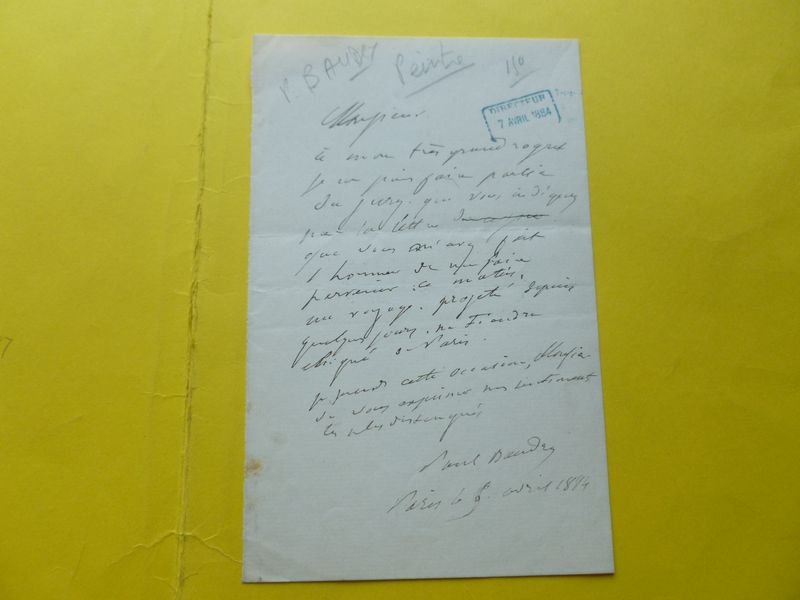 P. BAUDRY Peintre 150
DIRECTEUR
7 AVRIL 1884
Monsieur
à mon très grand regret
je ne puis faire partie
du jury que vous indiquez
par la lettre
que vous m'avez fait
l'honneur de me faire
parvenir ce matin,
un voyage projeté depuis
quelques jours me tiendra
éloigné de Paris.
je prends cette occasion, Monsieur
de vous exprimer mes sentiments
les plus distingués
Paul Baudry
Paris le avril 1884